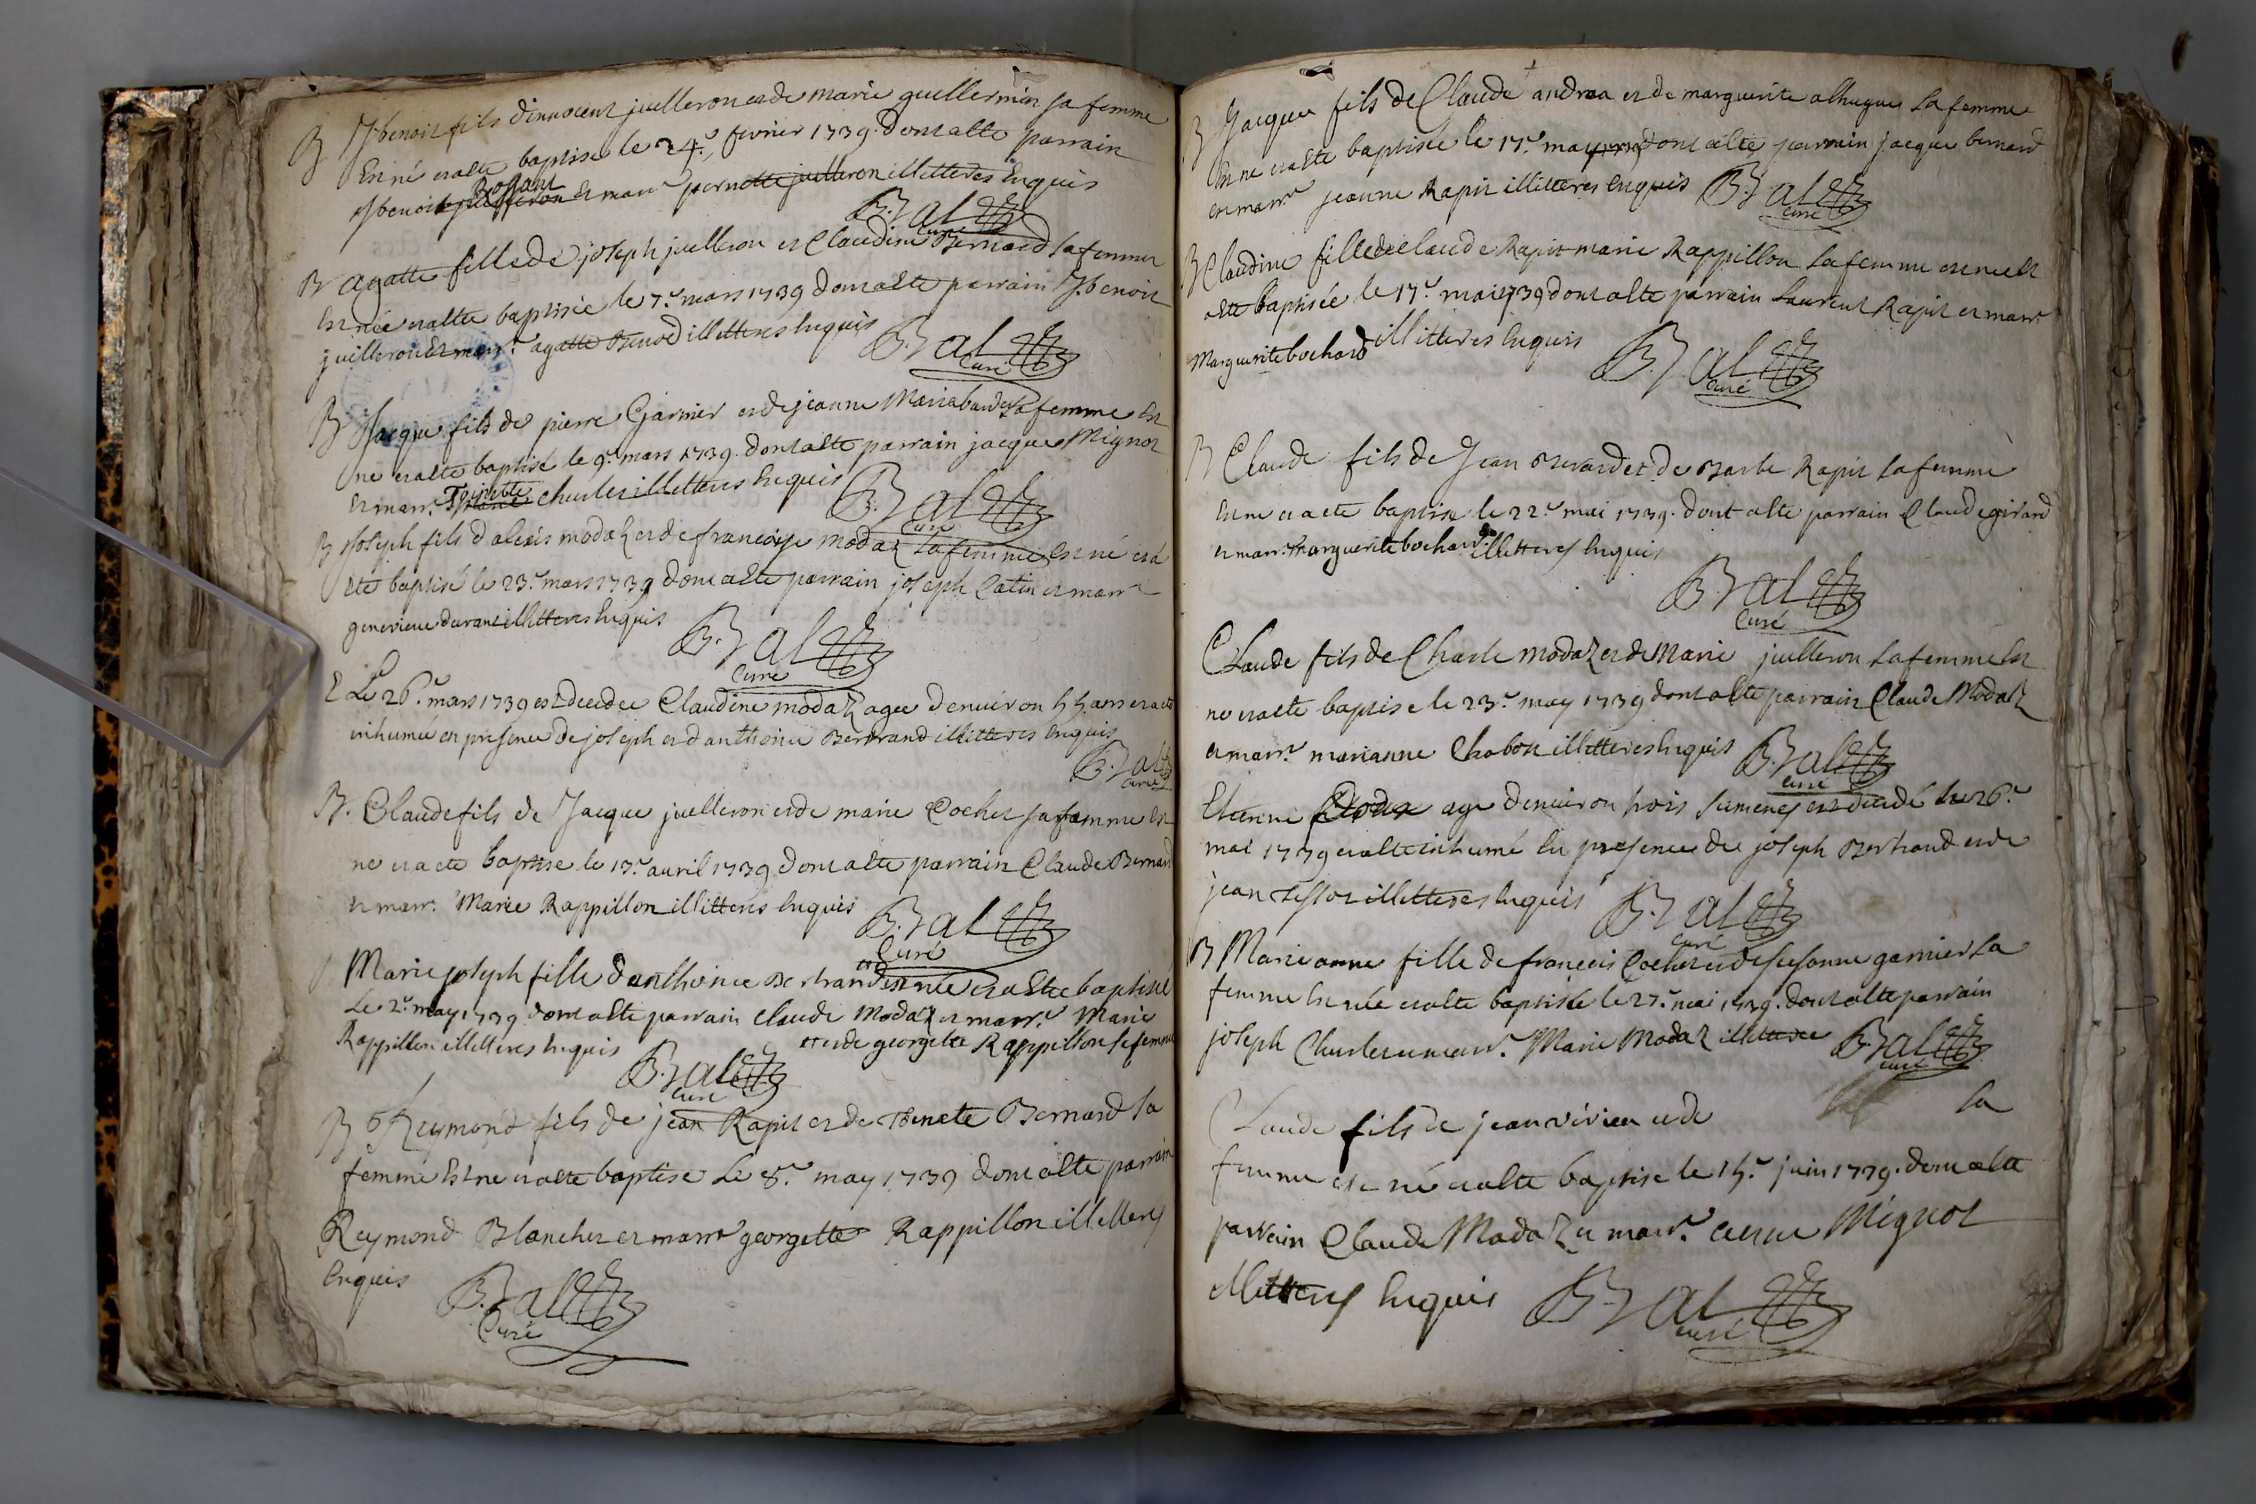 B Jbenoit fils d'innocent juilleron et de marie guillermin sa femme
Est né et a été baptisé le 24.e fevrier 1739. dont a été parrain
Jbenoit Bossant et marr.e pernette juilleron illitteres Enquis
B. Bal curé
B agatte fille de joseph juilleron et Claudine Bernard sa femme
Est née et a été baptisée le 7.e mars 1739 dont a été parrain Jbenoit
juilleron Et marr.e agatte Benod illitteres Enquis
B. Bal Curé
B Jacque fils de pierre Garnier et de jeanne Maria sa femme Est
né et a été baptisé le 9.e mars 1739. dont a été parrain jacque Mignot
Et marr.e Toinette Charles illitteres Enquis
B. Bal Curé
B Joseph fils d'alexis modaz et de francoise modaz sa femme Est né et a
été baptisé le 23.e mars 1739 dont a été parrain joseph Catin et marr.e
genevieve durant illitteres Enquis
B. Bal Curé
E Le 26.e mars 1739 est decedée Claudine modaz agée d'environ 55 ans et a été
inhumée en presence de joseph et d'anthoine Bertrand illitteres Enquis
B. Bal Curé
B. Claude fils de Jacque juilleron et de marie Cochet sa femme Est
né et a été baptisé le 13.e avril 1739 dont a été parrain Claude Bernard
et marr.e Marie Rappillon illitteres Enquis
B. Bal Curé
Marie joseph fille d'anthoine Bertrand est née et a été baptisée
Le 2.e may 1739 dont a été parrain claude Modaz et marr.e Marie
Rappillon illitteres Enquis
et de georgette Rappillon sa femme
B. Bal Curé
B Reymond fils de jean Rapit et de Benete Bernard sa
femme Est né et a été baptisé Le 8.e may 1739 dont a été parrain
Reymond Blanchet et marr.e georgette Rappillon illitteres
Enquis
B. Bal Curé
B Jacque fils de Claude andrea et de marguerite alhugue sa femme
Est né et a été baptisé le 17.e may dont a été parrain jacque bernard
et marr.e jeanne Rapit illitteres Enquis B. Bal Curé
B Claudine fille de Claude Rapit marie Rappillon sa femme est née et
a été baptisée le 17.e mai 1739 dont a été parrain Laurent Rapit et marr.e
Marguerite bochard illitteres Enquis
B. Bal Curé
B Claude fils de Jean Bevard et de Barbe Rapit sa femme
Est né et a été baptisé le 22.e mai 1739. dont a été parrain Claude girard
et marr.e marguerite bochard illitteres Enquis
B. Bal Curé
Claude fils de Charle modaz et de Marie juilleron sa femme Est
né et a été baptisé le 23.e may 1739 dont a été parrain Claude Modaz
et marr.e marianne Chabot illitteres Enquis B. Bal Curé
Etienne agé d'environ trois semenes est decedé le 26.e
mai 1739 et a été inhumé En presence de joseph Bertrand et de
jean Tissot illitteres Enquis B. Bal Curé
B Marie anne fille de francois Cochet et de Susanne garnier sa
femme Est née et a été baptisée le 27.e mai 1739. dont a été parrain
joseph Charles et marr.e Marie Modaz illitteres B. Bal Curé
Claude fils de jean vivien et de sa
femme est né et a été baptisé le 15.e juin 1739. dont a été
parrain Claude Modaz et marr.e Mignot
illitteres Enquis B. Bal Curé